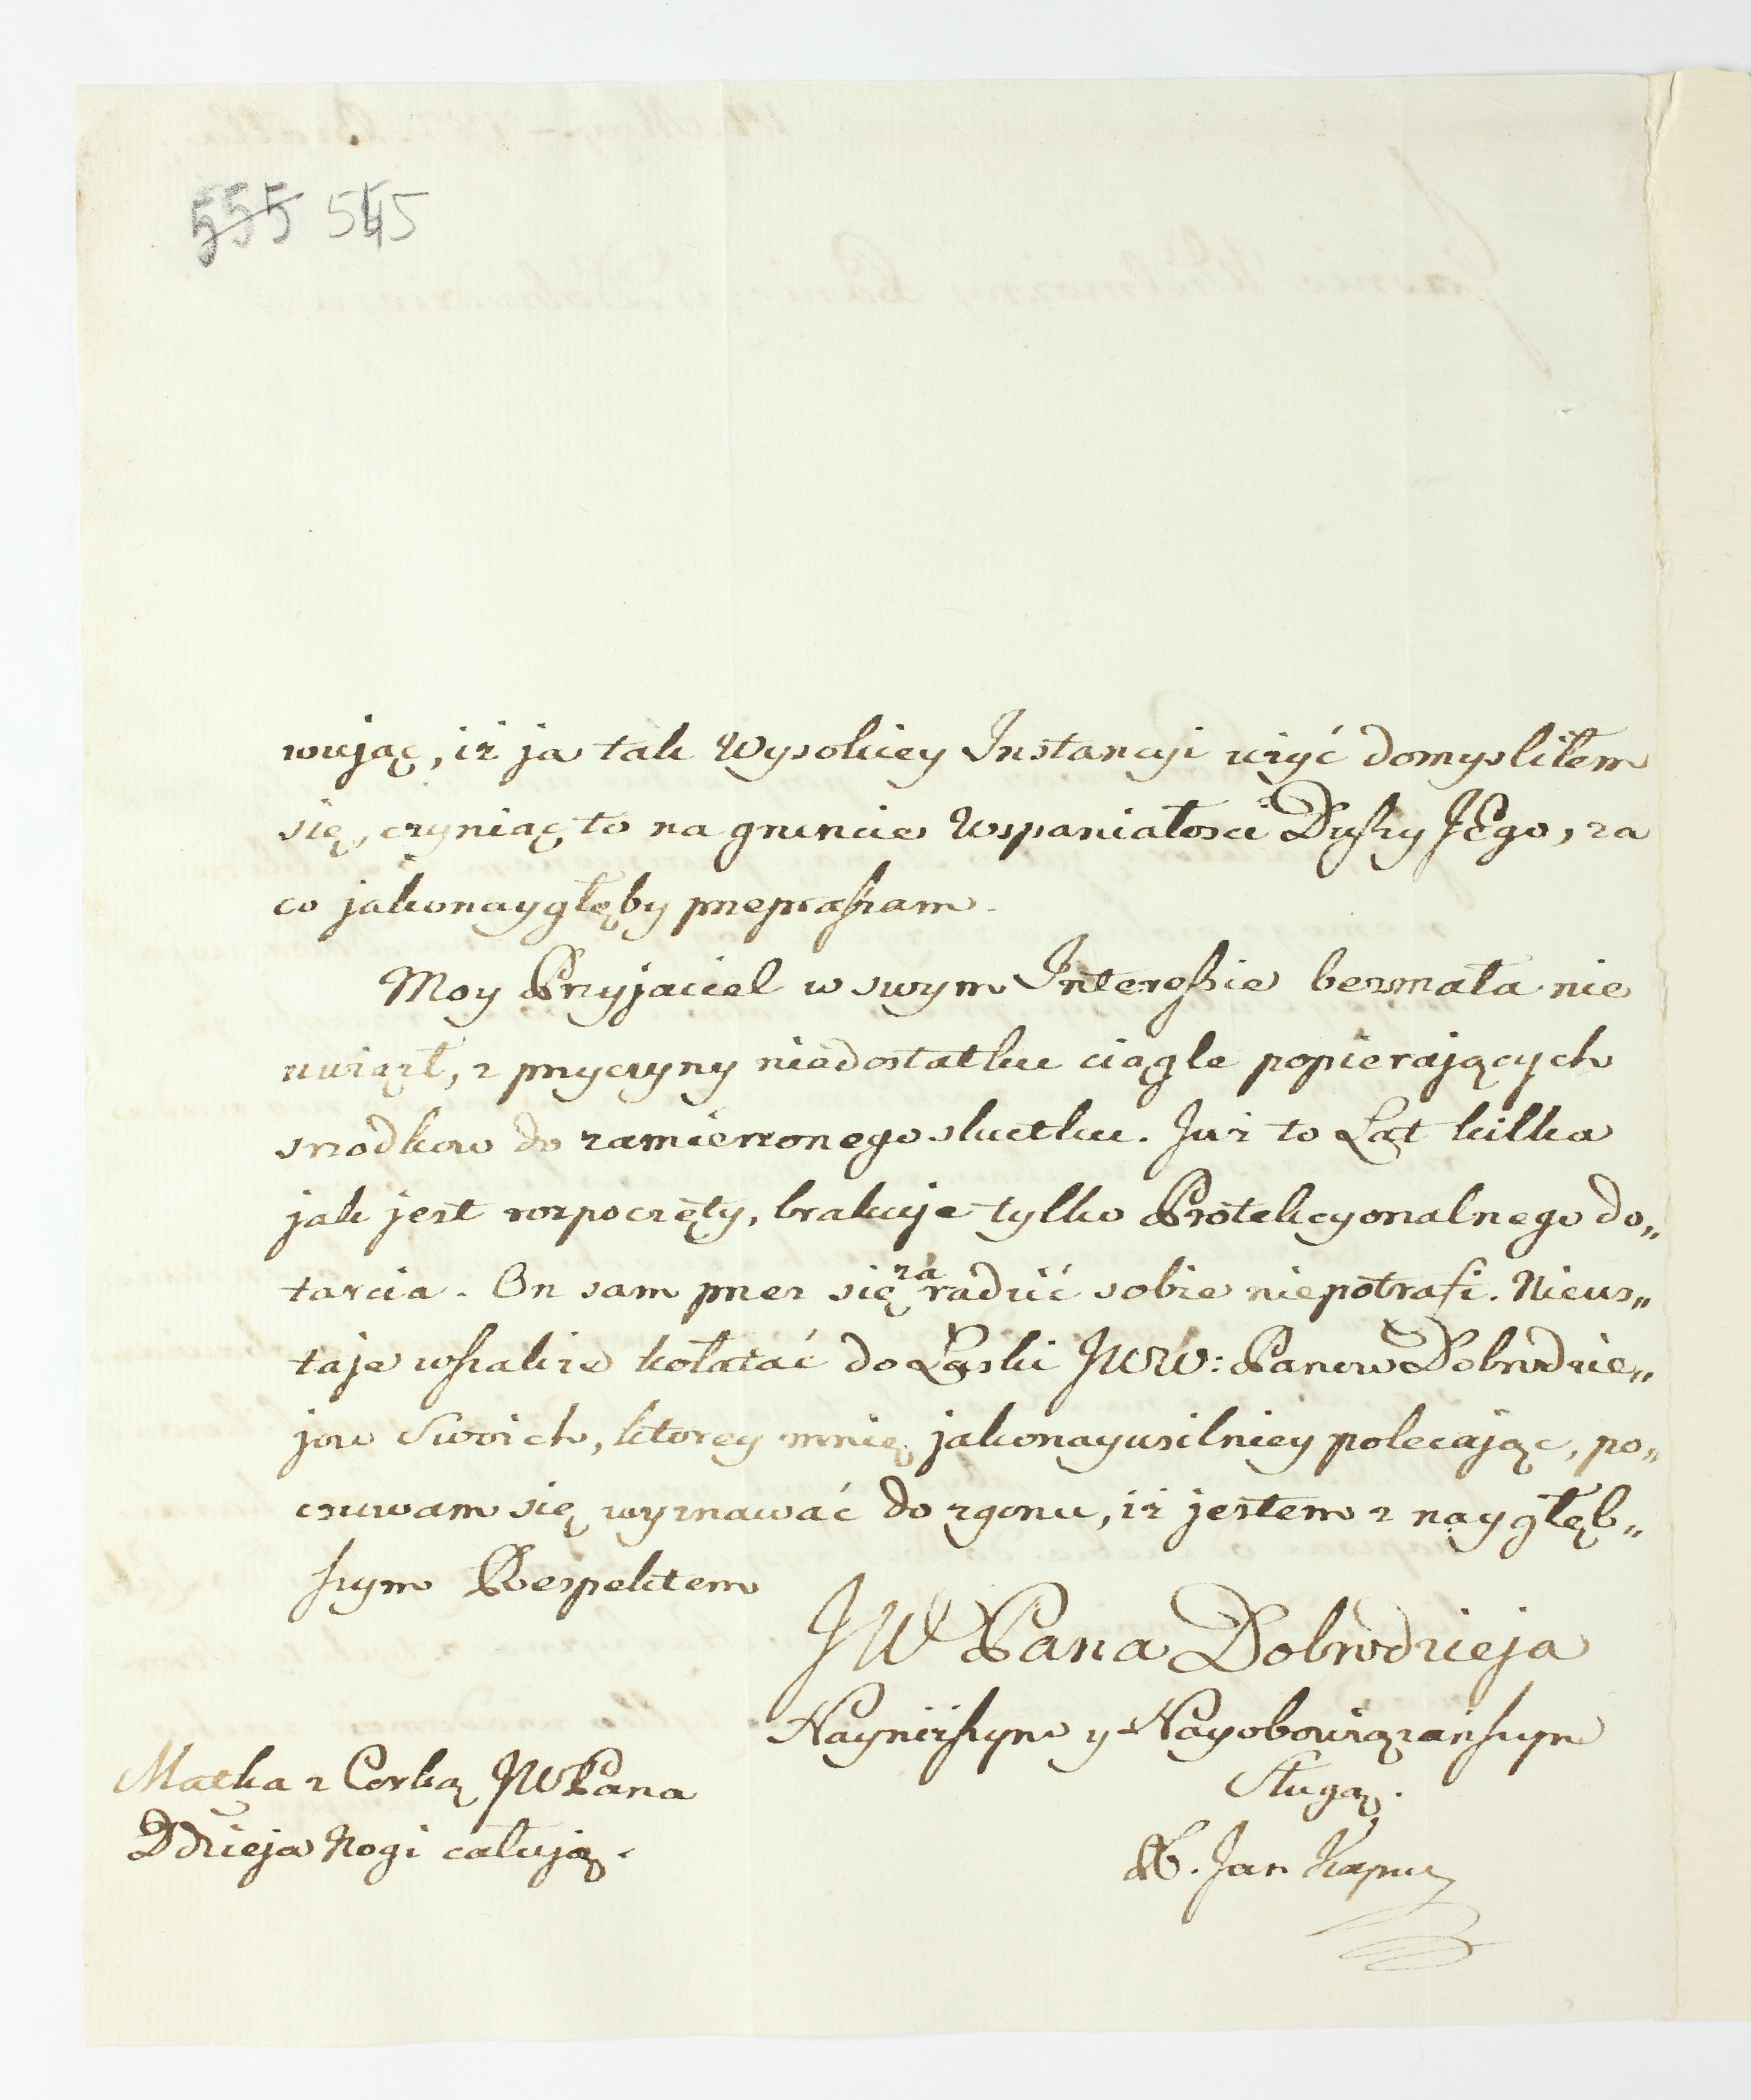 555 545
wując, iż ja tak Wysokiey Instancyi użyć domysliłem
się, czyniąc to na gruncie Wspaniałosci Duszy JEgo, za
co jakonaygłęby przepraszam.
Moy Przyjaciel w swym Interessie bezmała nie
uwiązł, z przyczyny niedostatku ciągle popierających
srzodkow do zamierzonego skutku. Juz to Lat kilka
jak jest rozpoczęty, brakuje tylko Protekcyonalnego do„
tarcia. On sam przez się zaradzić sobie niepotrafi. Nieus„
taje wszakże kołatać do Łaski JWW: Panow Dobrodzie„
jow Swoich, ktorey mnię jakonayusilniey polecając, po„
czuwam się wyznawać do zgonu, iż jestem z naygłęb„
szym Respektem
JW Pana Dobrodzieja
Nayniższym y Nayobowiązańszym
Sługą.
X. Jan
Matka z Corką JWPana
Ddzieja Nogi całują.